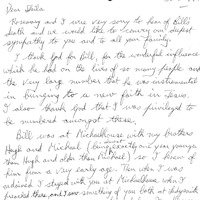 Dear Sheila
Rosemary and I were very sorry to hear of Bill's
death and we would like to convey our deepest
sympathy to you and to all your family.
I thank God for Bill, for the wonderful influence
which he had on the lives of so many people and
the very large number that he was instrumental
in bringing to a new faith in Jesus.
I also thank God that I was privileged to
be numbered amongst these.
Bill was at Michaelhouse with my brothers
Hugh and Michael (being exactly one year younger
than Hugh and older than Michael) so I knew of
him from a very early age. Then when I was
ordained I stayed with you at Michaelhouse when I
preached there and I saw something of you both at